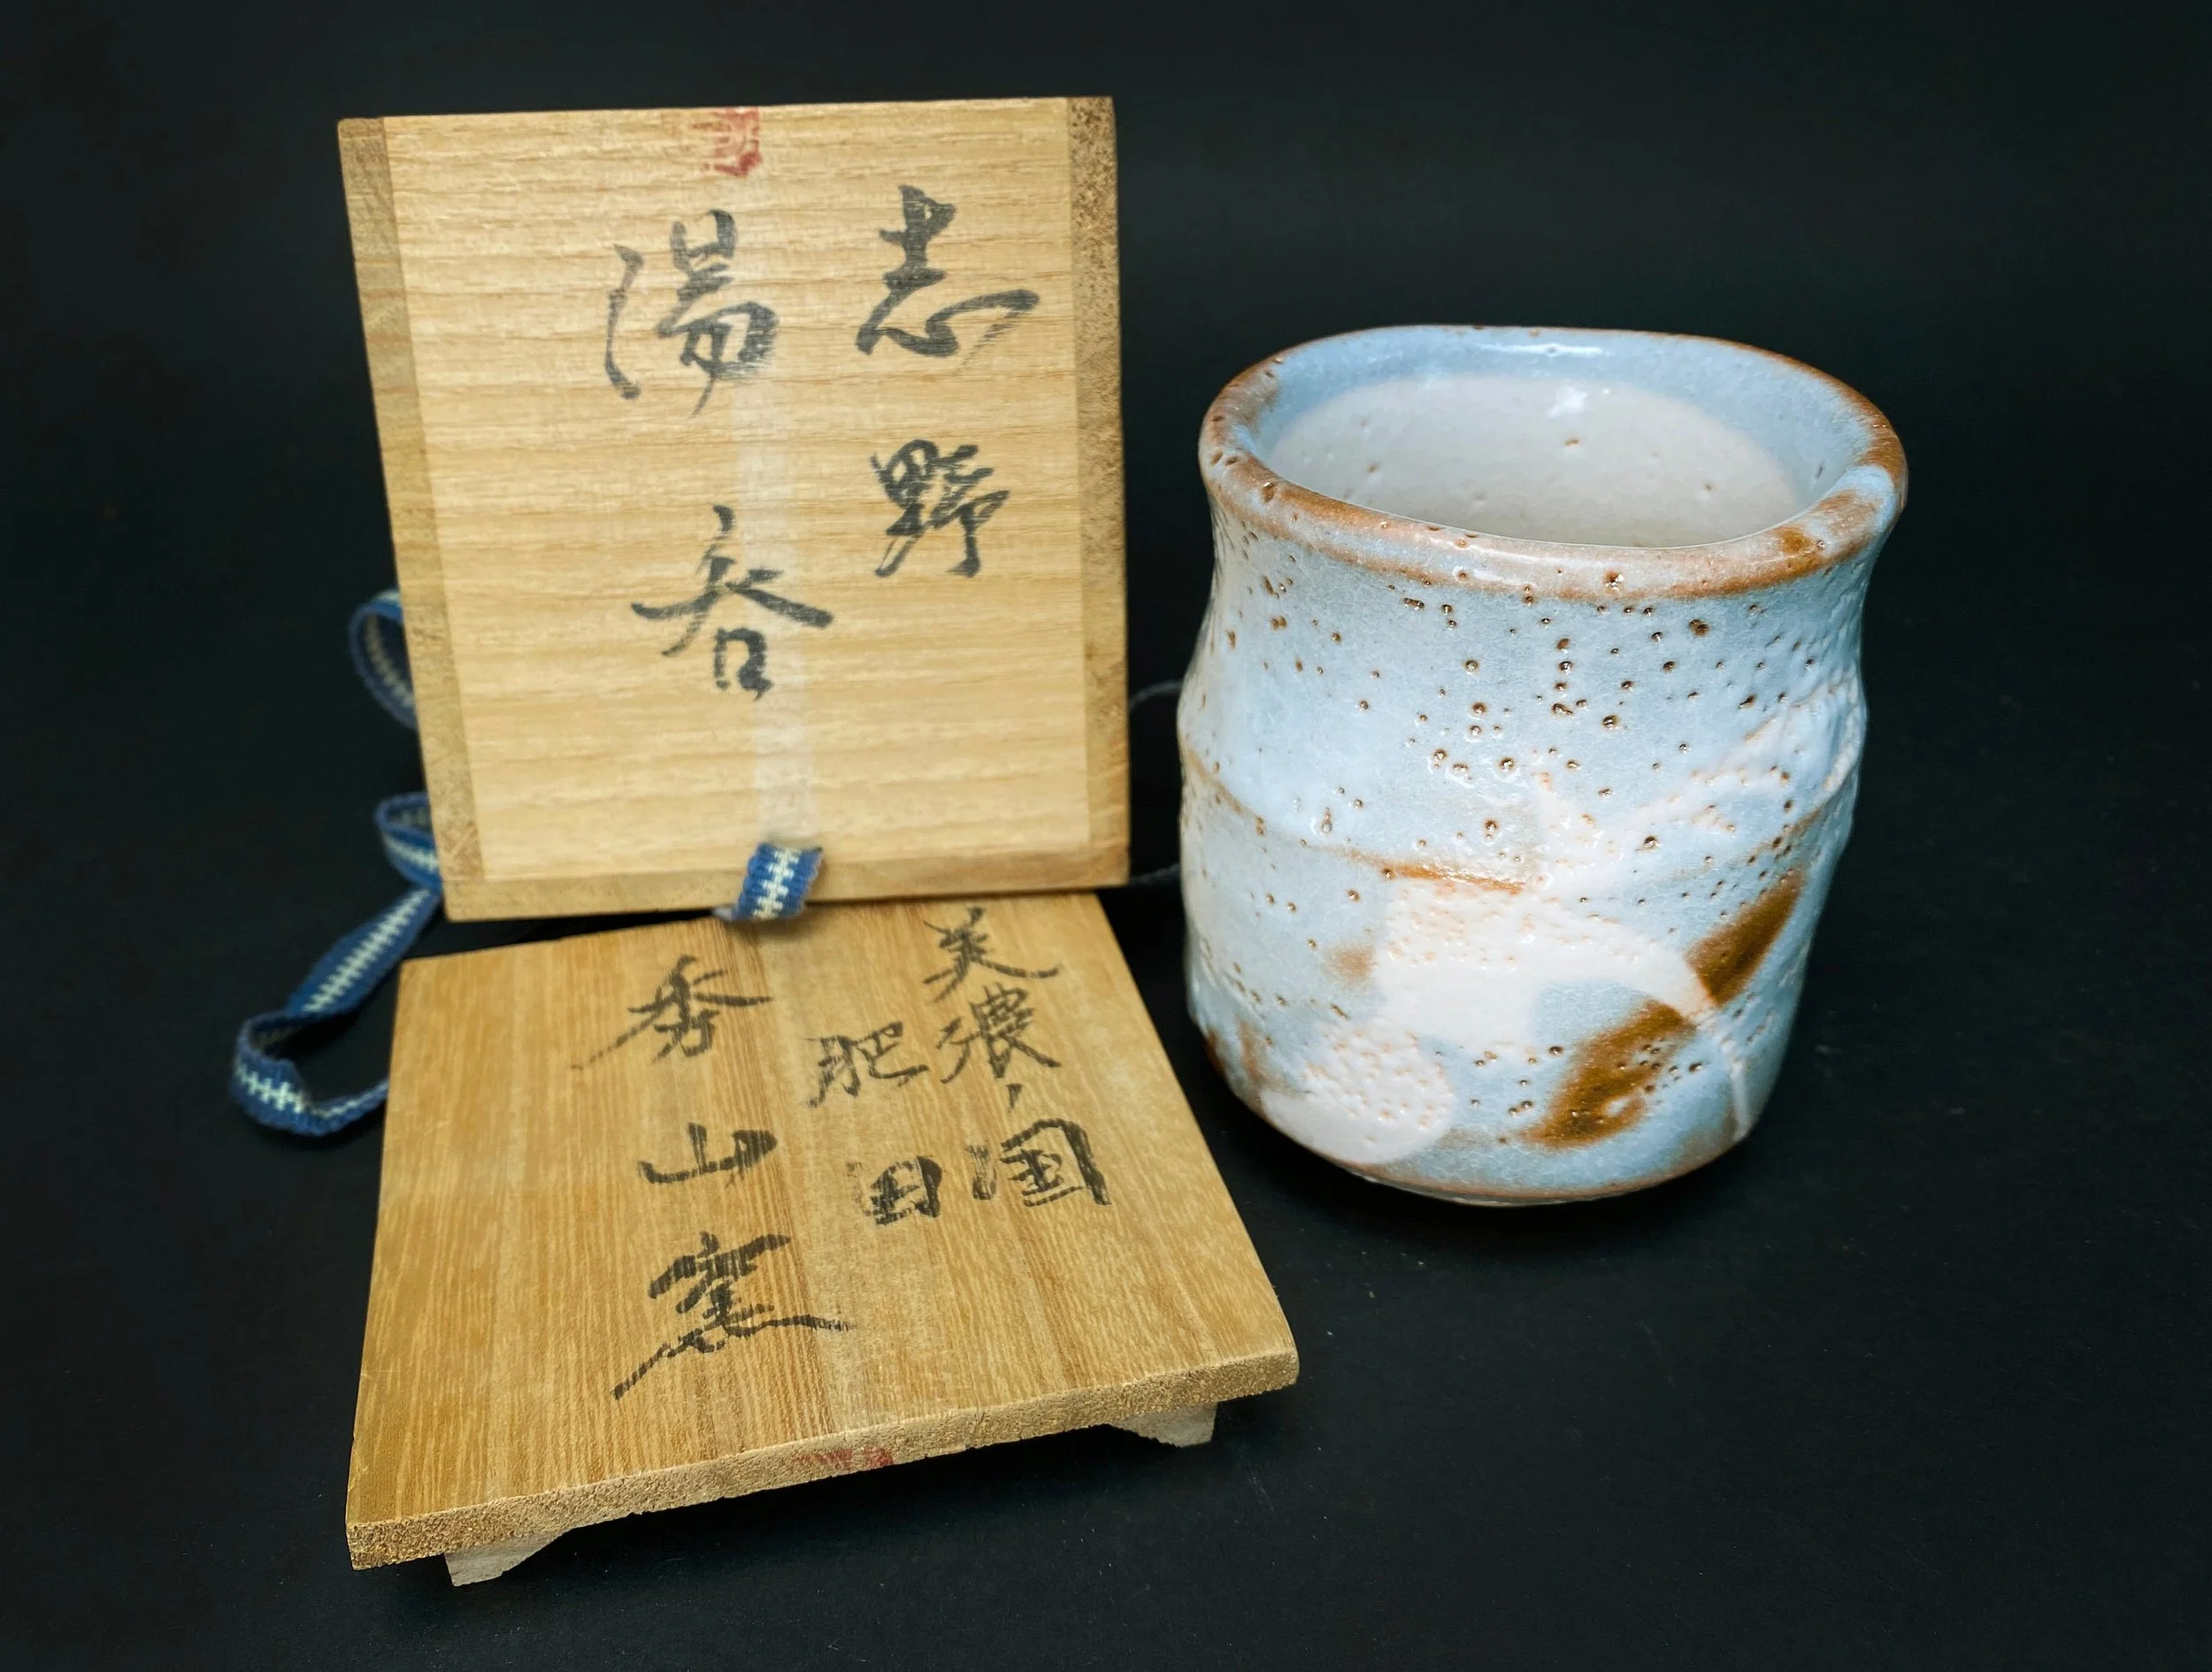 志野
湯呑
美濃ノ国
肥田
秀山窯